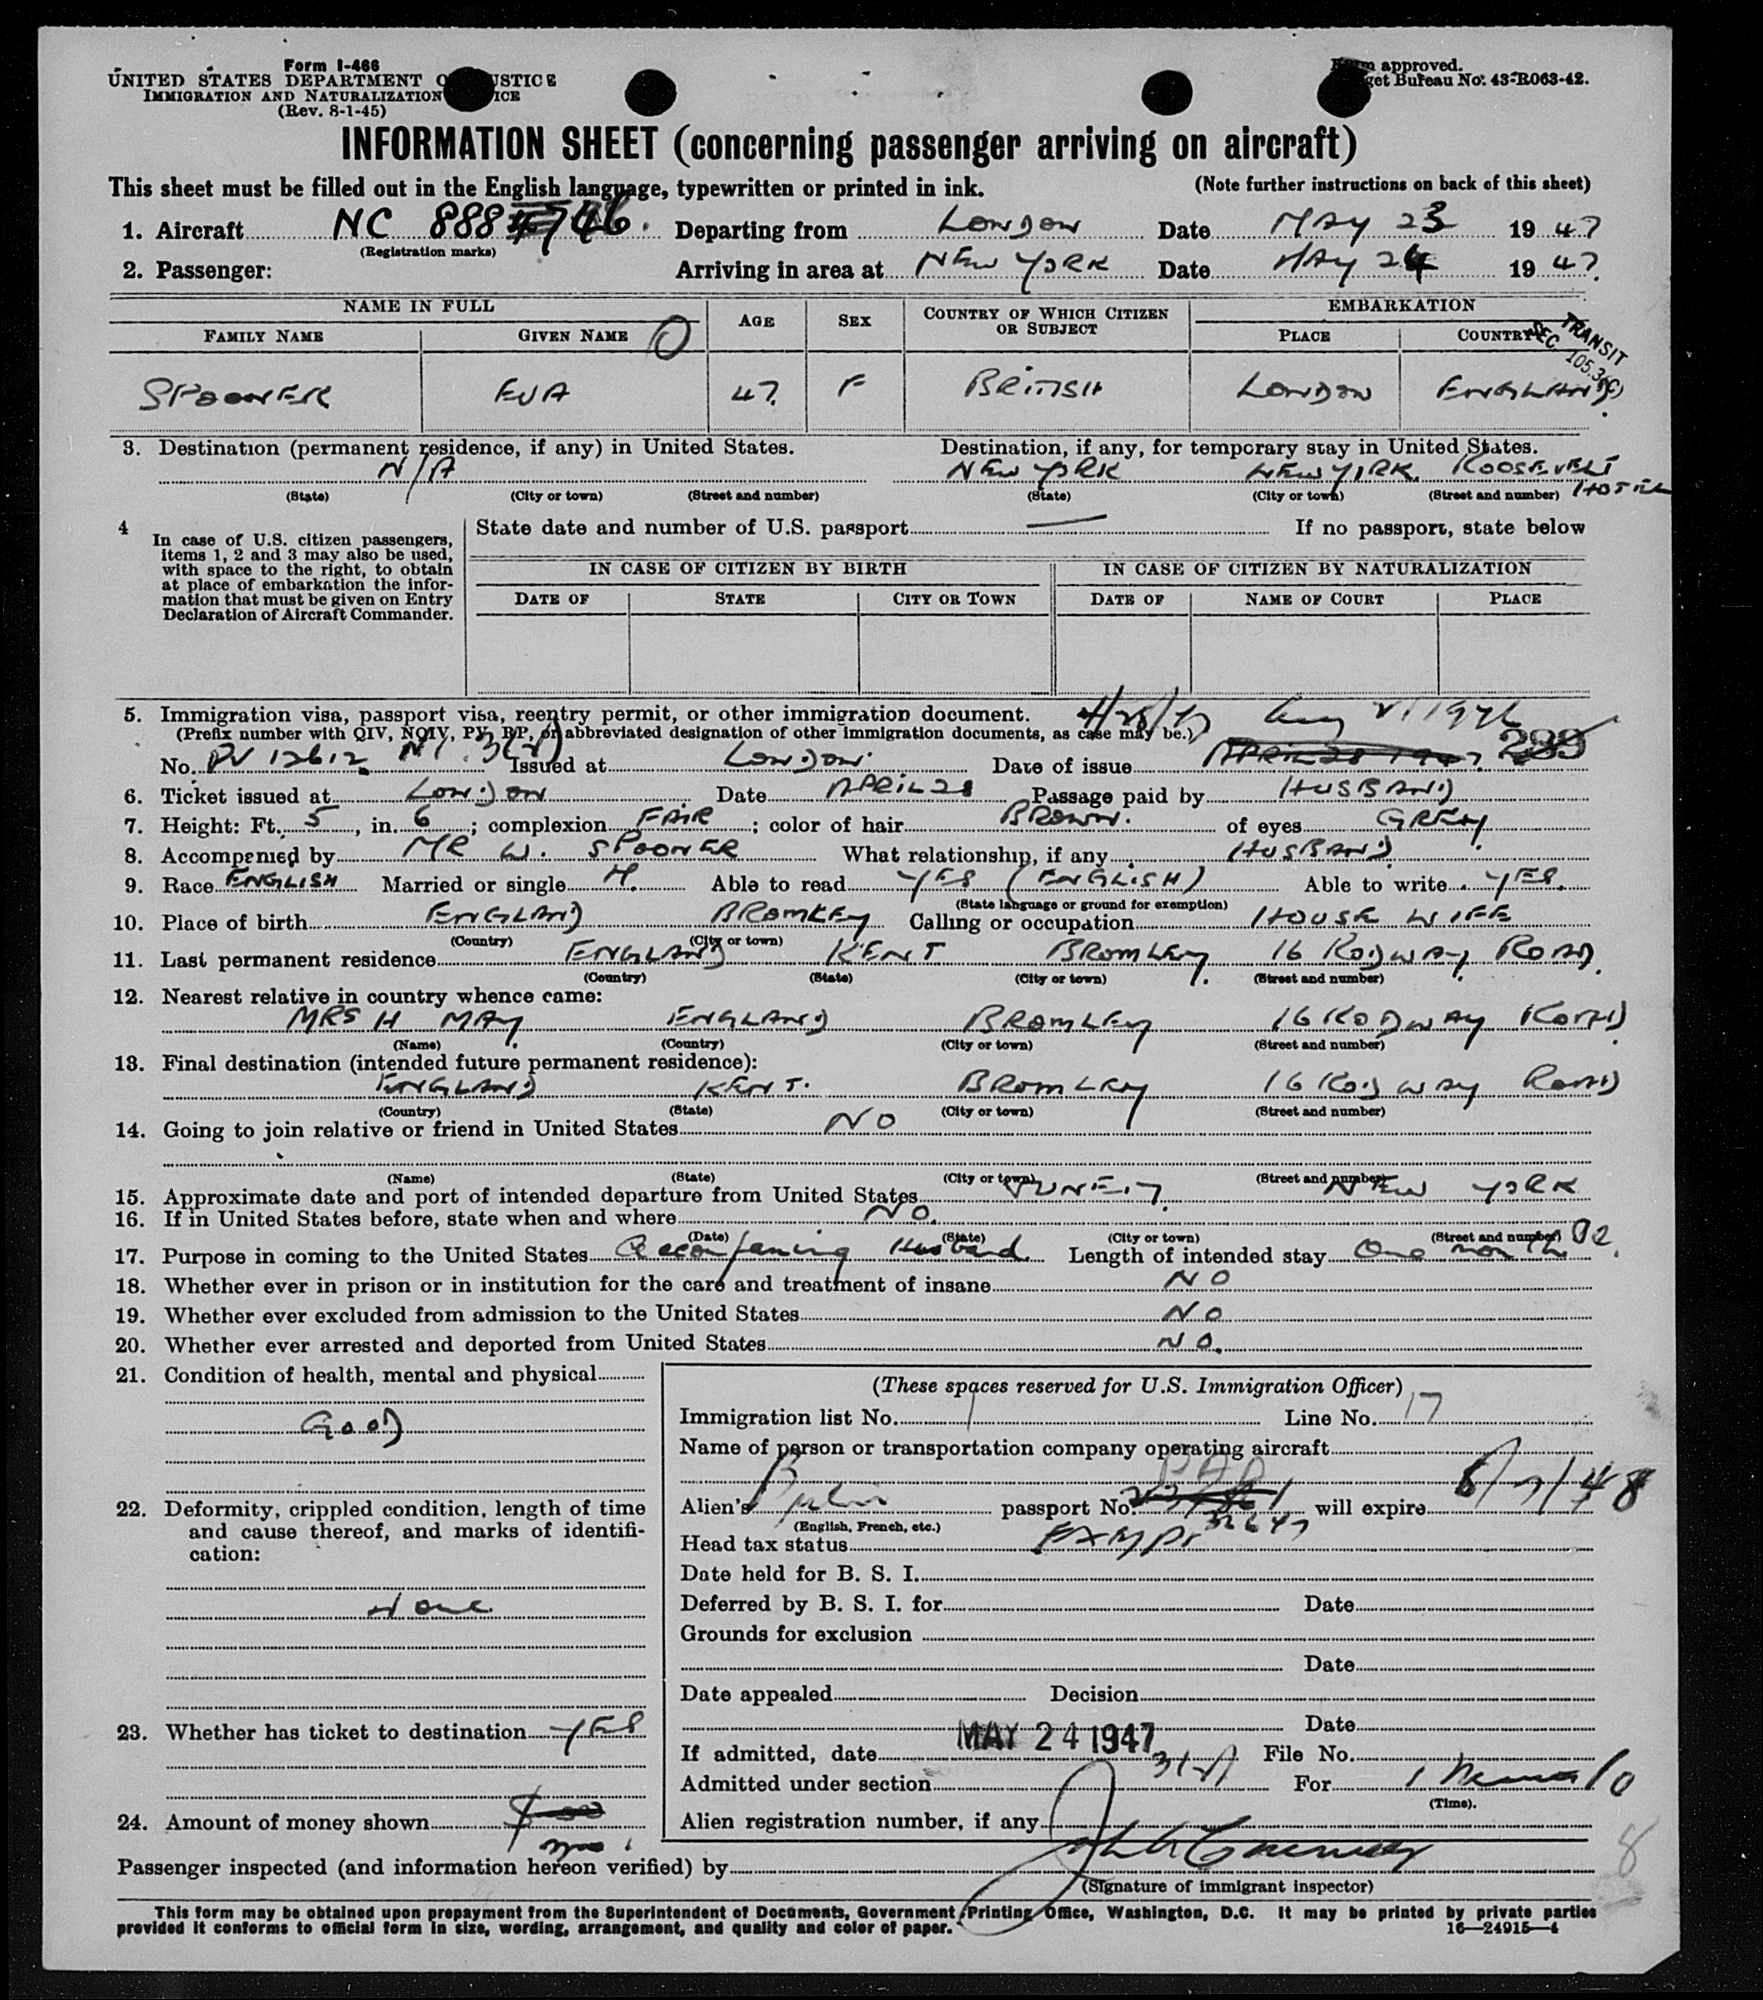 Form I-466
UNITED STATES DEPARTMENT
IMMIGRATION AND NATURALIZATION
(Rev. 8-1-45)
approved.
Bureau No. 43-R063-42.
INFORMATION SHEET (concerning passenger arriving on aircraft)
This sheet must be filled out in the English language, typewritten or printed in ink. (Note further instructions on back of this sheet)
1. Aircraft NC 888 746. Departing from LONDON Date MAY 23 19 47
(Registration marks)
2. Passenger: Arriving in area at NEW YORK Date MAY 24 19 47.
NAME IN FULL AGE SEX COUNTRY OF WHICH CITIZEN OR SUBJECT EMBARKATION
FAMILY NAME GIVEN NAME PLACE COUNTRY
TRANSIT
SEC. 105.3(C)
SPOONER EVA 47. F BRITISH LONDON ENGLAND.
3. Destination (permanent residence, if any) in United States. Destination, if any, for temporary stay in United States.
N/A NEW YORK NEW YORK. ROOSEVELT HOTEL
(State) (City or town) (Street and number) (State) (City or town) (Street and number)
4 In case of U.S. citizen passengers, items 1, 2 and 3 may also be used, with space to the right, to obtain at place of embarkation the information that must be given on Entry Declaration of Aircraft Commander.
State date and number of U.S. passport — If no passport, state below
IN CASE OF CITIZEN BY BIRTH IN CASE OF CITIZEN BY NATURALIZATION
DATE OF STATE CITY OR TOWN DATE OF NAME OF COURT PLACE
5. Immigration visa, passport visa, reentry permit, or other immigration document. 4/28/47
(Prefix number with QIV, NQIV, PV, RP, or abbreviated designation of other immigration documents, as case may be.)
No. PV 12612 Issued at LONDON. Date of issue APRIL 28 1947. 289
6. Ticket issued at LONDON Date APRIL 28 Passage paid by HUSBAND
7. Height: Ft. 5, in. 6; complexion FAIR; color of hair BROWN. of eyes GREY.
8. Accompanied by MR W. SPOONER What relationship, if any HUSBAND
9. Race ENGLISH Married or single M. Able to read YES (ENGLISH) Able to write YES.
(State language or ground for exemption)
10. Place of birth ENGLAND BROMLEY Calling or occupation HOUSE WIFE
(Country) (City or town)
11. Last permanent residence ENGLAND KENT BROMLEY. 16 RODWAY ROAD.
(Country) (State) (City or town) (Street and number)
12. Nearest relative in country whence came:
MRS H MAY. ENGLAND BROMLEY 16 RODWAY ROAD.
(Name) (Country) (City or town) (Street and number)
13. Final destination (intended future permanent residence):
ENGLAND KENT. BROMLEY 16 RODWAY ROAD
(Country) (State) (City or town) (Street and number)
14. Going to join relative or friend in United States NO
(Name) (State) (City or town) (Street and number)
15. Approximate date and port of intended departure from United States JUNE 17. NEW YORK
16. If in United States before, state when and where NO.
(Date) (State) (City or town) (Street and number)
17. Purpose in coming to the United States Accompanying Husband Length of intended stay One month
18. Whether ever in prison or in institution for the care and treatment of insane NO
19. Whether ever excluded from admission to the United States NO
20. Whether ever arrested and deported from United States NO.
21. Condition of health, mental and physical
GOOD
22. Deformity, crippled condition, length of time and cause thereof, and marks of identification:
None
23. Whether has ticket to destination YES
24. Amount of money shown $
(These spaces reserved for U.S. Immigration Officer)
Immigration list No. 1 Line No. 17
Name of person or transportation company operating aircraft
PAA
Alien's passport No. will expire 8/7/48
(English, French, etc.)
Head tax status EXMPT
Date held for B. S. I.
Deferred by B. S. I. for Date
Grounds for exclusion
Date
Date appealed Decision
Date
If admitted, date MAY 24 1947 File No.
Admitted under section For
(Time).
Alien registration number, if any
Passenger inspected (and information hereon verified) by
(Signature of immigrant inspector)
8
This form may be obtained upon prepayment from the Superintendent of Documents, Government Printing Office, Washington, D.C. It may be printed by private parties
provided it conforms to official form in size, wording, arrangement, and quality and color of paper. 16—24915-1